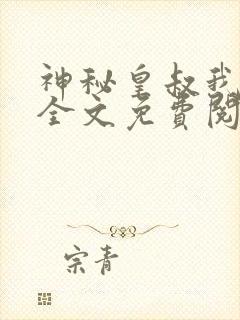 神秘皇叔我
全文免費閱
宗青